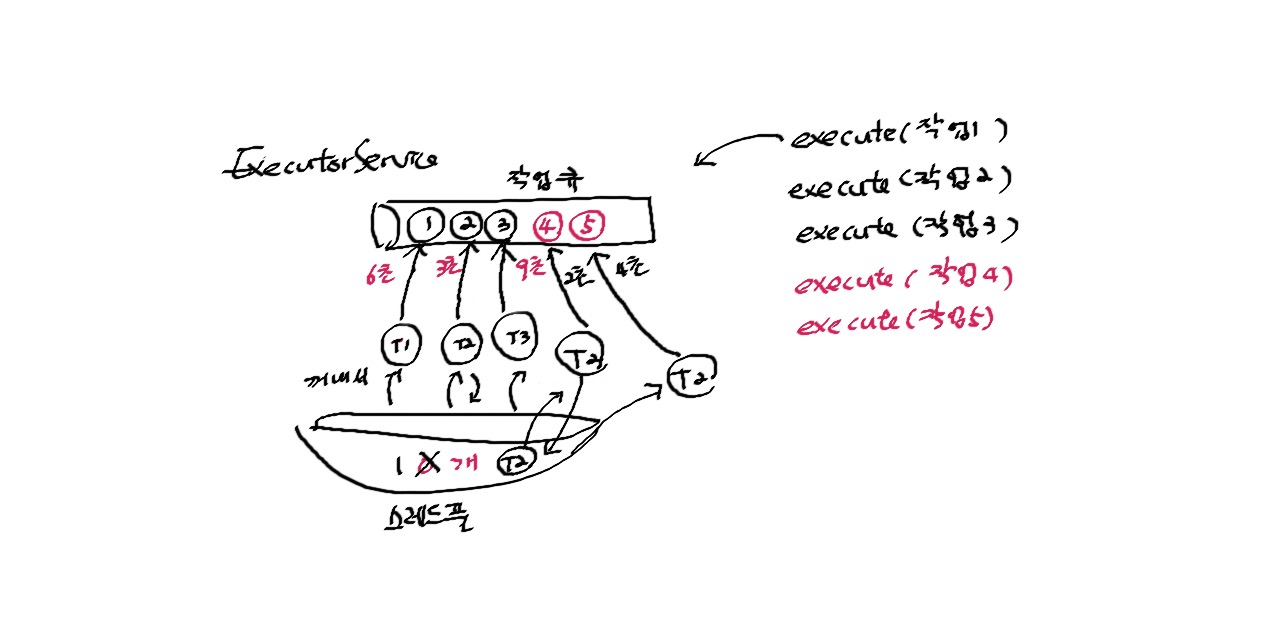 ExecutorService
작업큐
1 2 3 4 5
6초 3초 9초 2초 4초
T1 T2 T3 T2 T2
꺼내서
1 개 T2
스레드풀
execute(작업1)
execute(작업2)
execute(작업3)
execute(작업4)
execute(작업5)